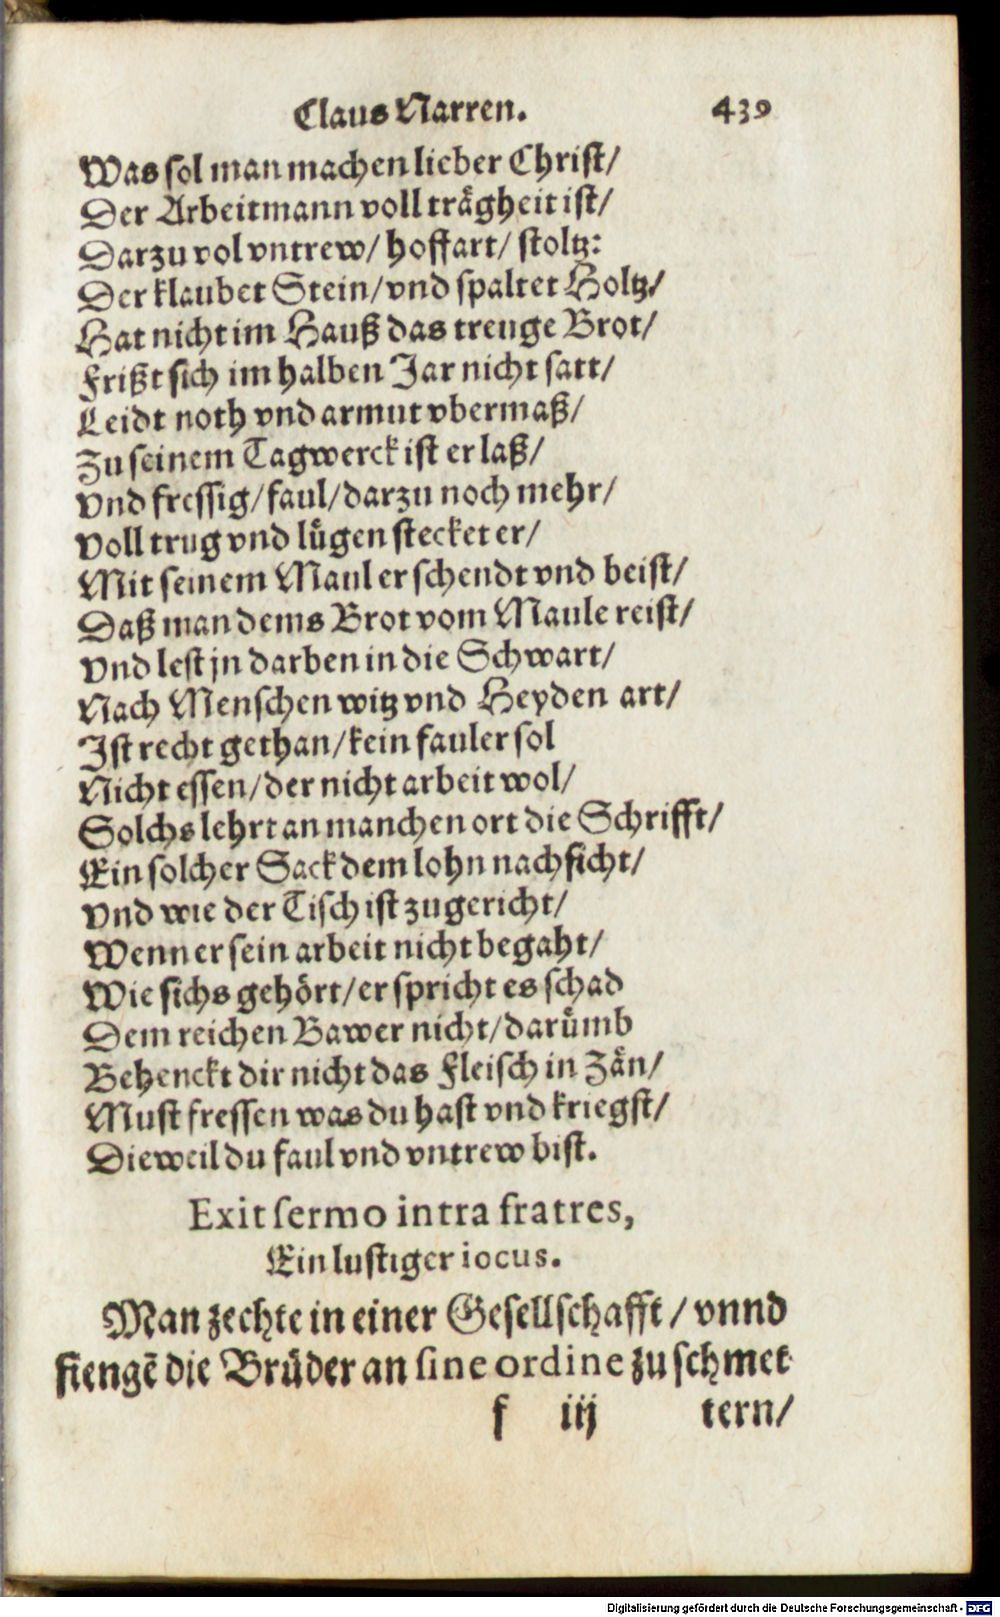 Claus Narren. 439
Was sol man machen lieber Christ/
Der Arbeitmann voll trågheit ist/
Darzu vol vntrew/ hoffart/ stoltz:
Der klaubet Stein/ vnd spaltet Holtz/
Hat nicht im Hauß das treuge Brot/
Frißt sich im halben Jar nicht satt/
Leidt noth vnd armut vbermaß/
Zu seinem Tagwerck ist er laß/
Vnd fressig/ faul/ darzu noch mehr/
Voll trug vnd lůgen stecket er/
Mit seinem Maul er schendt vnd beist/
Daß man dems Brot vom Maule reist/
Vnd lest jn darben in die Schwart/
Nach Menschen witz vnd Heyden art/
Ist recht gethan/ kein fauler sol
Nicht essen/ der nicht arbeit wol/
Solchs lehrt an manchen ort die Schrifft/
Ein solcher Sack dem lohn nachsicht/
Vnd wie der Tisch ist zugericht/
Wenn er sein arbeit nicht begaht/
Wie sichs gehört/ er spricht es schad
Dem reichen Bawer nicht/ darůmb
Behenckt dir nicht das Fleisch in Zån/
Must fressen was du hast vnd kriegst/
Dieweil du faul vnd vntrew bist.
Exit sermo intra fratres,
Ein lustiger iocus.
Man zechte in einer Gesellschafft / vnnd
fiengē die Brüder an sine ordine zu schmet
f iij tern/
Digitalisierung gefördert durch die Deutsche Forschungsgemeinschaft - DFG